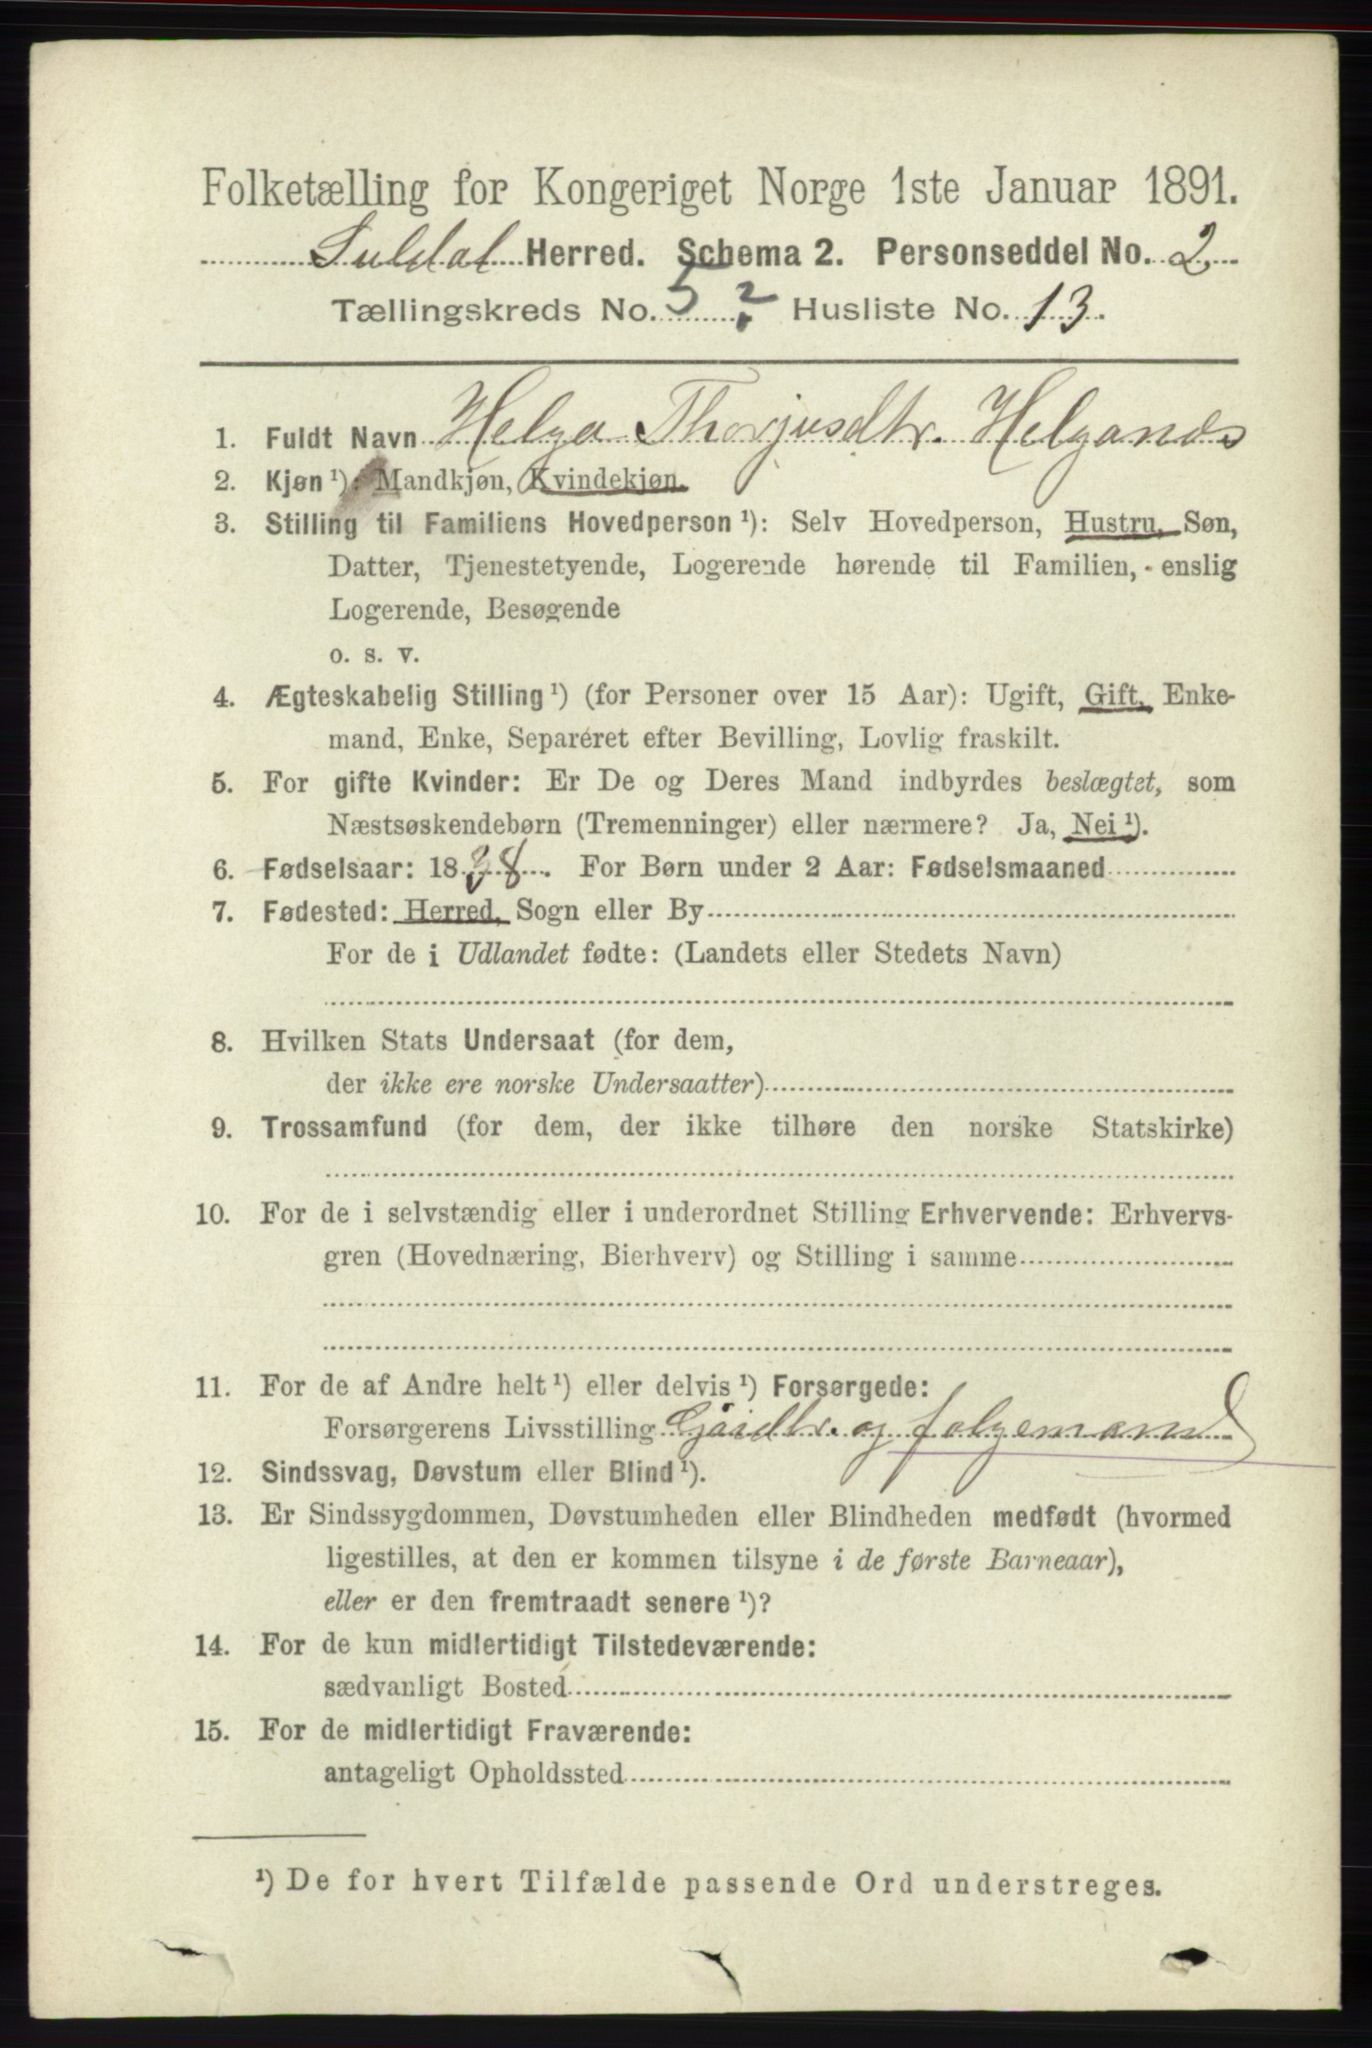 Folketælling for Kongeriget Norge 1ste Januar 1891.
Suldal Herred. Schema 2. Personseddel No. 2
Tællingskreds No. 5 ? Husliste No. 13.
1. Fuldt Navn Helga Thorjusdtr. Helganes
2. Kjøn¹): Mandkjøn, Kvindekjøn.
3. Stilling til Familiens Hovedperson¹): Selv Hovedperson, Hustru, Søn,
Datter, Tjenestetyende, Logerende hørende til Familien, enslig
Logerende, Besøgende
o. s. v.
4. Ægteskabelig Stilling¹) (for Personer over 15 Aar): Ugift, Gift, Enke-
mand, Enke, Separeret efter Bevilling, Lovlig fraskilt.
5. For gifte Kvinder: Er De og Deres Mand indbyrdes beslægtet, som
Næstsøskendebørn (Tremenninger) eller nærmere? Ja, Nei¹).
6. Fødselsaar: 1838. For Børn under 2 Aar: Fødselsmaaned
7. Fødested: Herred, Sogn eller By
For de i Udlandet fødte: (Landets eller Stedets Navn)
8. Hvilken Stats Undersaat (for dem,
der ikke ere norske Undersaatter)
9. Trossamfund (for dem, der ikke tilhøre den norske Statskirke)
10. For de i selvstændig eller i underordnet Stilling Erhvervende: Erhvervs-
gren (Hovednæring, Bierhverv) og Stilling i samme
11. For de af Andre helt¹) eller delvis¹) Forsørgede:
Forsørgerens Livsstilling Gaardbr. og folgemand
12. Sindssvag, Døvstum eller Blind¹).
13. Er Sindssygdommen, Døvstumheden eller Blindheden medfødt (hvormed
ligestilles, at den er kommen tilsyne i de første Barneaar),
eller er den fremtraadt senere¹)?
14. For de kun midlertidigt Tilstedeværende:
sædvanligt Bosted
15. For de midlertidigt Fraværende:
antageligt Opholdssted
¹) De for hvert Tilfælde passende Ord understreges.